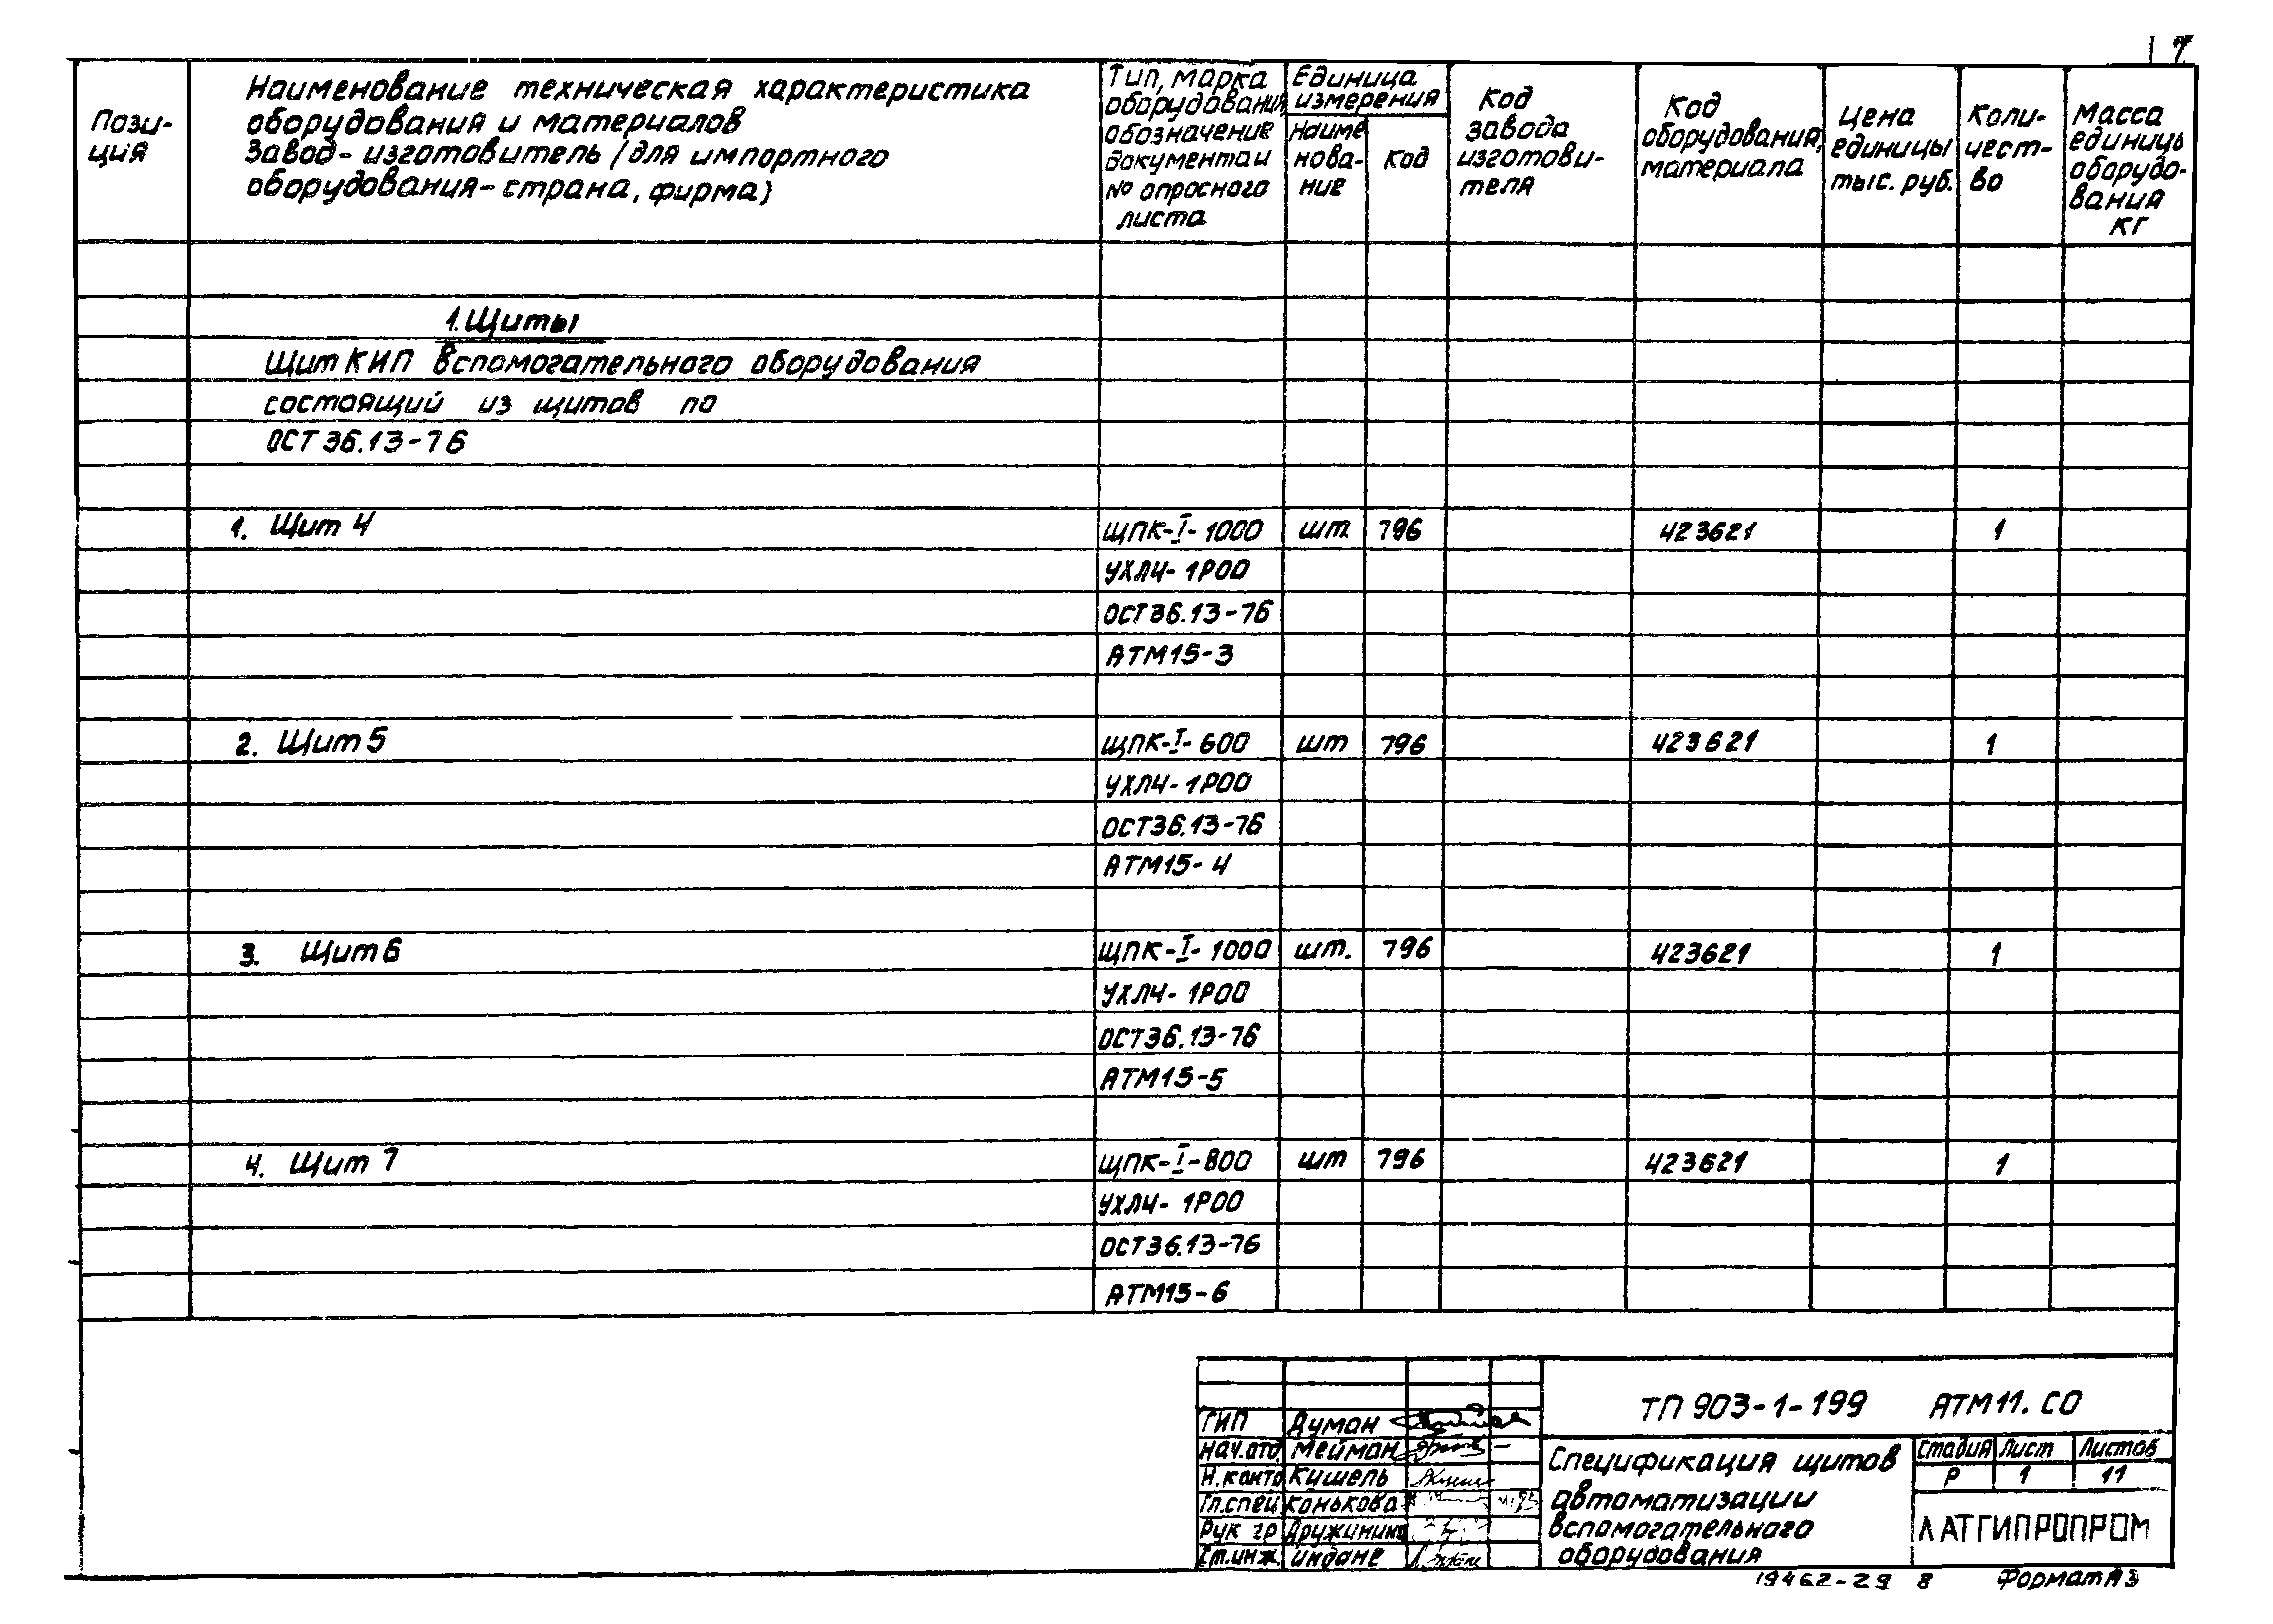 7
Пози-
ция
Наименование техническая характеристика
оборудования и материалов
Завод-изготовитель /для импортного
оборудования-страна, фирма)
Тип, марка
оборудования,
обозначение
документа и
№ опросного
листа
Единица
измерения
Наиме
нова-
ние
код
Код
завода
изготови-
теля
Код
оборудования,
материала
Цена
единицы
тыс. руб.
Коли-
чест-
во
Масса
единицы
оборудо-
вания
кг
1. Щиты
Щит КИП вспомогательного оборудования
состоящий из щитов по
ОСТ 36.13-76
1. Щит 4 ЩПК-I-1000 шт. 796 423621 1
УХЛ4-1Р00
ОСТ36.13-76
АТМ15-3
2. Щит 5 ЩПК-I-600 шт 796 423621 1
УХЛ4-1Р00
ОСТ36.13-76
АТМ15-4
3. Щит 6 ЩПК-I-1000 шт. 796 423621 1
УХЛ4-1Р00
ОСТ36.13-76
АТМ15-5
4. Щит 7 ЩПК-I-800 шт 796 423621 1
УХЛ4-1Р00
ОСТ36.13-76
АТМ15-6
ТП 903-1-199 АТМ11.СО
ГИП Думан
Нач.отд. Мейман
Н.контр Кишель
Гл.спец Конькова
Рук гр Дружинина
Ст.инж. Индане
Спецификация щитов
автоматизации
вспомогательного
оборудования
Стадия Лист Листов
Р 1 11
ЛАТГИПРОПРОМ
19462-29 8 Формат А3